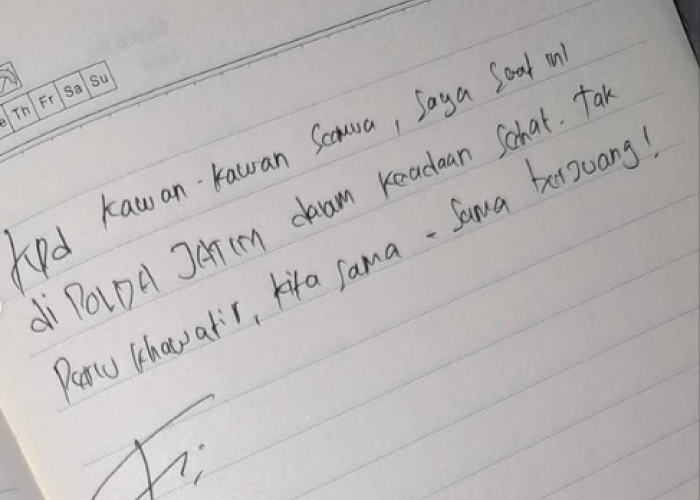 Th Fr Sa Su
Kpd kawan-kawan semua, saya saat ini
di POLDA JATIM dalam keadaan sehat. Tak
perlu khawatir, kita sama-sama berjuang!